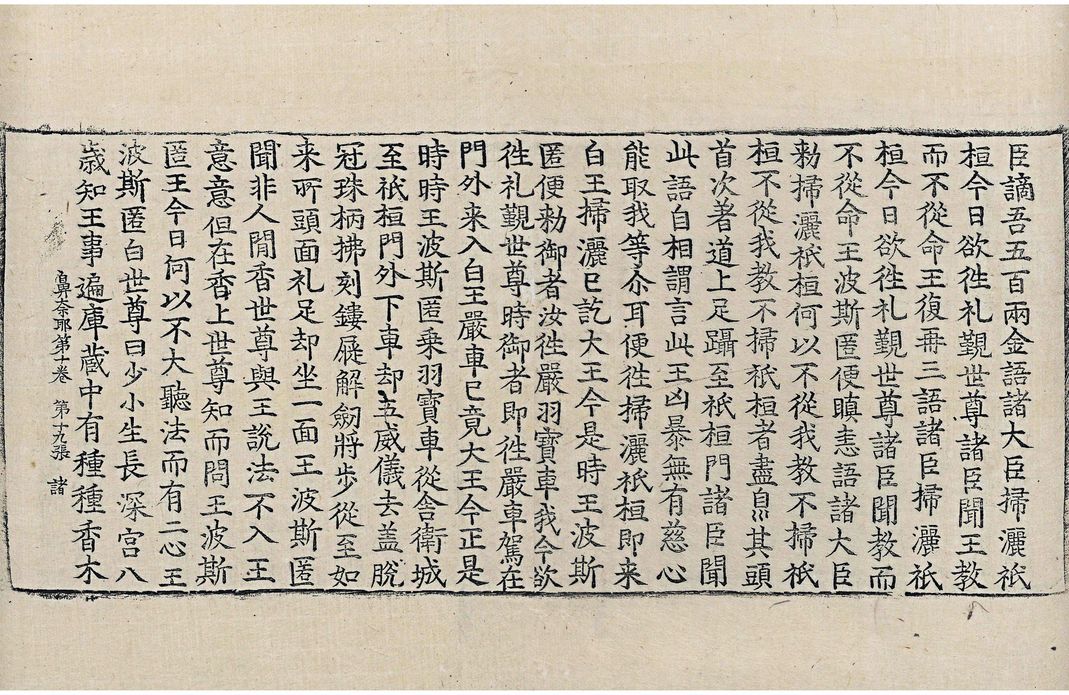 臣謫吾五百兩金語諸大臣掃灑祇
桓今日欲徃礼覲世尊諸臣聞王教
而不從命王復再三語諸臣掃灑祇
桓今日欲徃礼覲世尊諸臣聞教而
不從命王波斯匿便瞋恚語諸大臣
勑掃灑祇桓何以不從我教不掃祇
桓不從我教不掃祇桓者盡𭽀其頭
首次著道上足躡至祇桓門諸臣聞
此語自相謂言此王凶暴無有慈心
能取我等尒耳便徃掃灑祇桓即来
白王掃灑已訖大王今是時王波斯
匿便勑御者汝徃嚴羽寶車我今欲
徃礼覲世尊時御者即徃嚴車駕在
門外来入白王嚴車已竟大王今正是
時時王波斯匿乗羽寶車從舎衛城
至祇桓門外下車却五威儀去盖脫
冠珠柄拂刻鏤屣解劒將步從至如
来所頭面礼足却坐一面王波斯匿
聞非人間香世尊與王說法不入王
意意但在香上世尊知而問王波斯
匿王今日何以不大聽法而有二心王
波斯匿白世尊曰少小生長深宫八
歳知王事遍庫藏中有種種香木
鼻奈耶第十卷 第十九張 諸